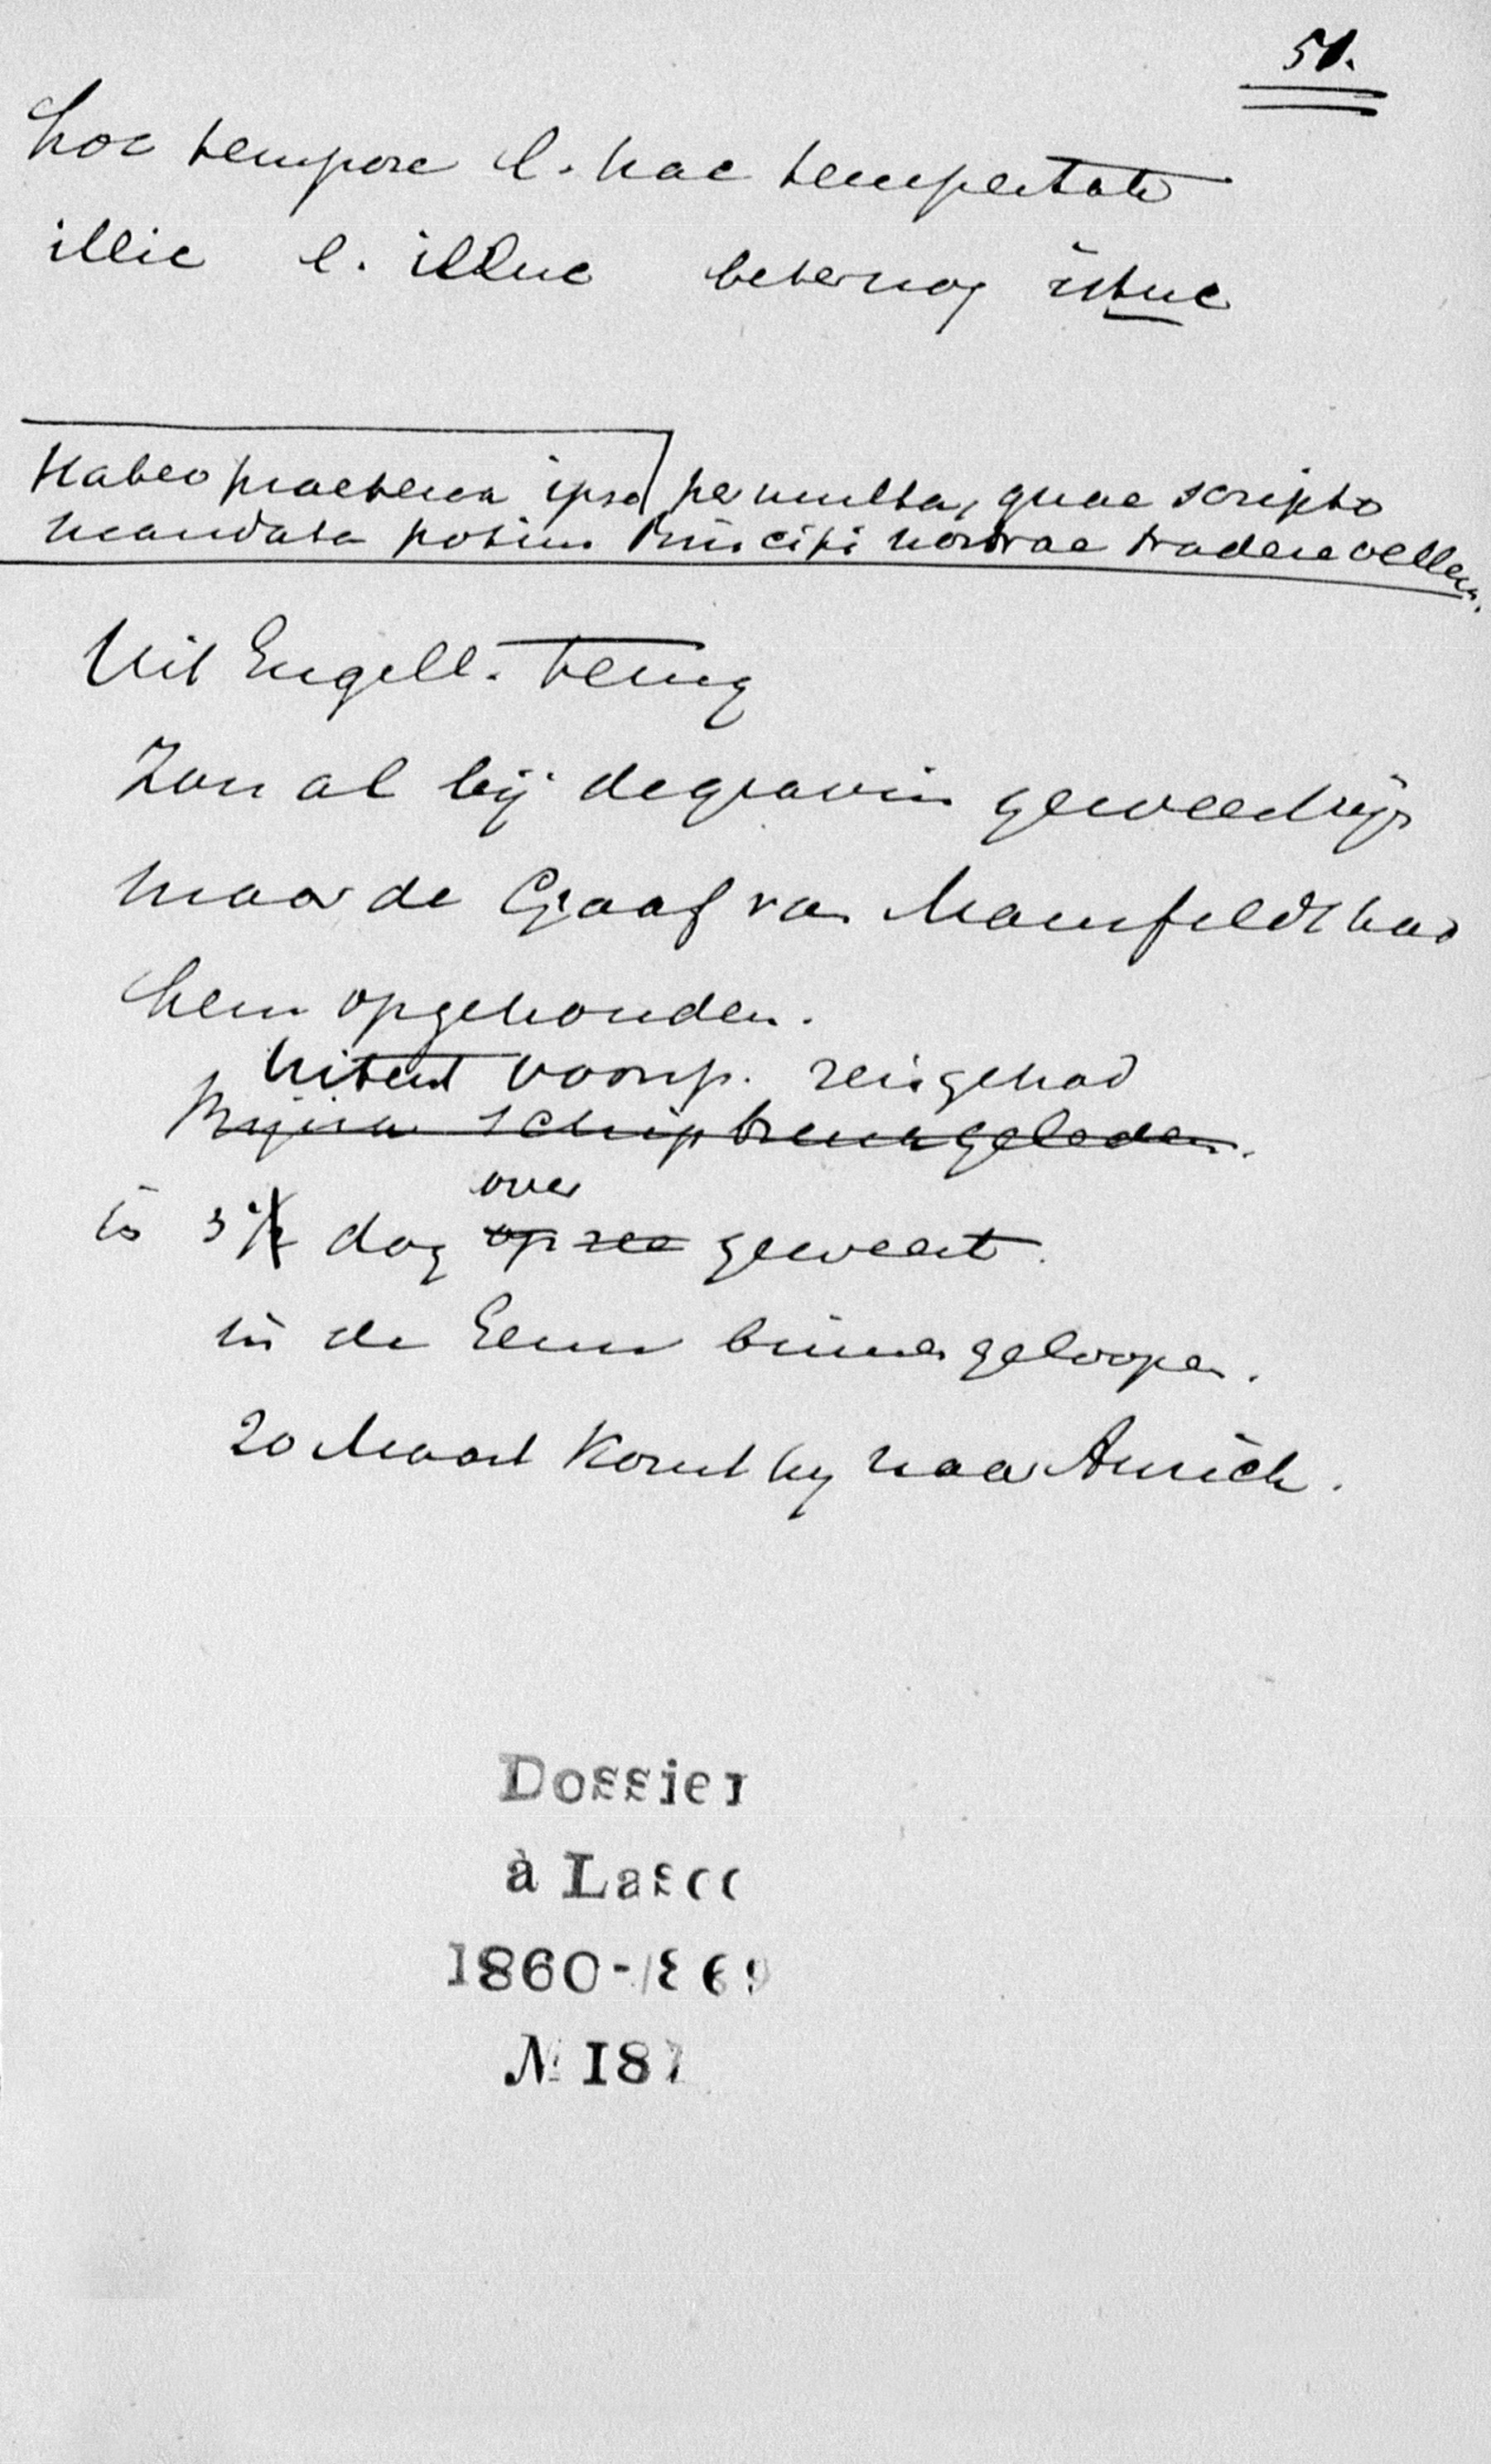 51.
hoc tempore l. hac tempestate
illic l. illuc beter nog istuc
Habeo praeterea ipse permulta, quae scripto
mandata potius Principi nostrae tradere vellem.
Uit Engell. terug
Zou al bij de gravin geweest zijn
maar de Graaf van Mansfeldt had
hem opgehouden.
Uiterst voorsp. reis gehad
Bijna schipbreuk geleden.
over
is 3 1/2 dag op zee geweest.
in de Eems binnengeloopen.
20 Maart komt hy naar Aurich.
Dossier
à Lasco
1860-1869
№ 187